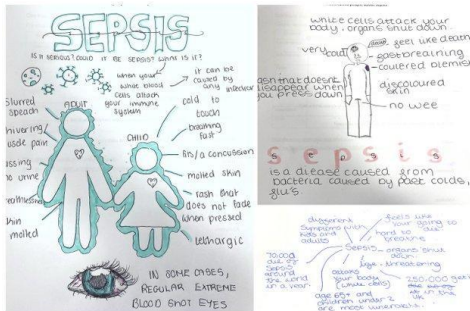 SEPSIS
IS IT SERIOUS? COULD IT BE SEPSIS? WHAT IS IT?
when your
white blood
cells attack
your immune
system
it can be
caused by
any infection
ADULT
Slurred
speach
shivering
muscle pain
no urine
skin
molled
CHILD
cold to
touch
breathing
fast
fits/a concussion
molled skin
rash that
does not fade
when pressed
lethargic
IN SOME CASES,
REGULAR EXTREME
BLOOD SHOT EYES
white cells attack your
body. organs shut down
very
bad
feel like death
fast breathing
discoloured
skin
no wee
rash that doesnt
disappear when
you press down
sepsis
is a diease caused from
bacteria caused by park colds,
flu's
different
symptoms with
kids and
adults
feels like
your going to
die
hard to
breathe
SEPSIS
organs shut
down
life-threatening
70,000
die of
sepsis
around the
world
in a year
attacks
your body
(white cells)
250,000 get
it in the
UK
age 65+ and
children under 2
are most